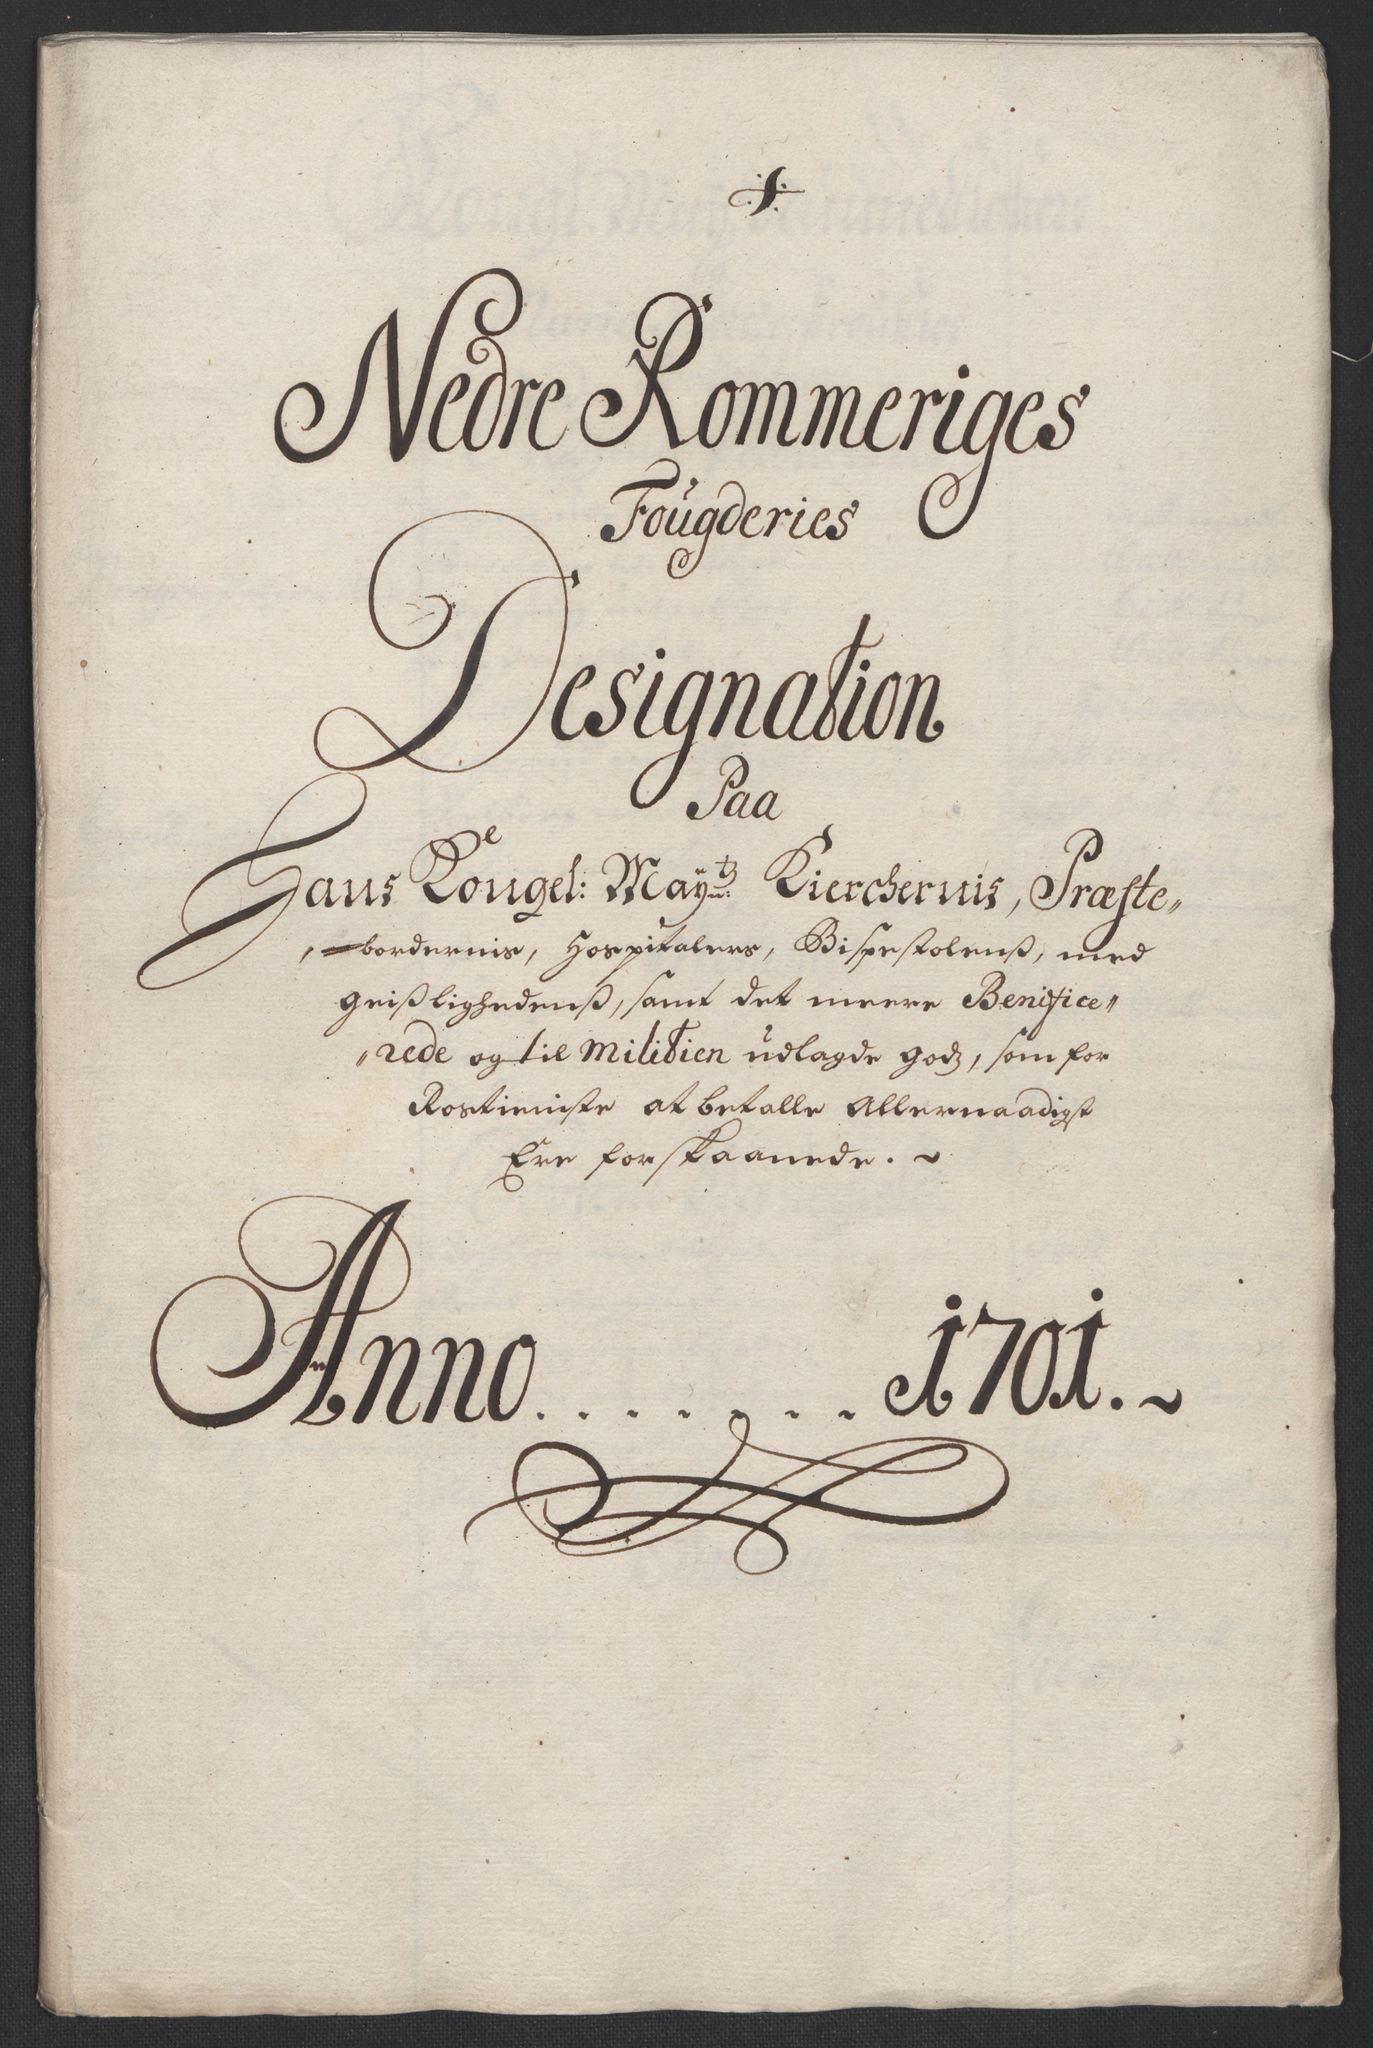 Nedre Rommeriges
Fougderies
Designation
Paa
Hans Kongel: Mayts: Kierchernis, Præste-
-bordernis, Hospitalers, Bispestolens, med
geistlighedens, samt det meere Benifice-
-rede og til Militien udlagde godz, som for
Rostieniste at betalle Allernaadigst
Ere forskaanede.
Anno . . . . . . . 1701.